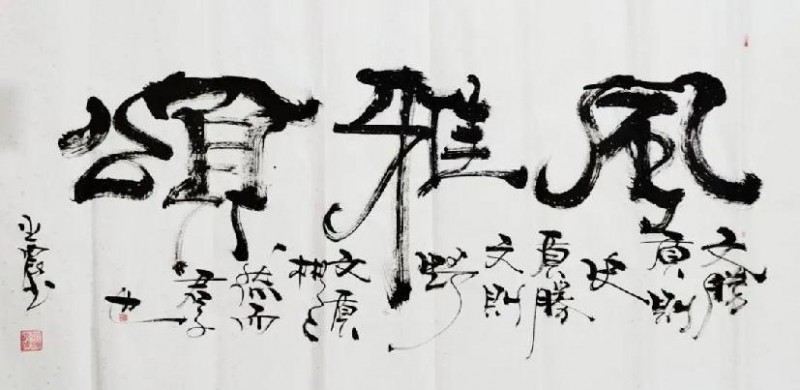 風雅頌
文勝
質則
史
質勝
文則
野
文質
彬彬
然而
君子
也